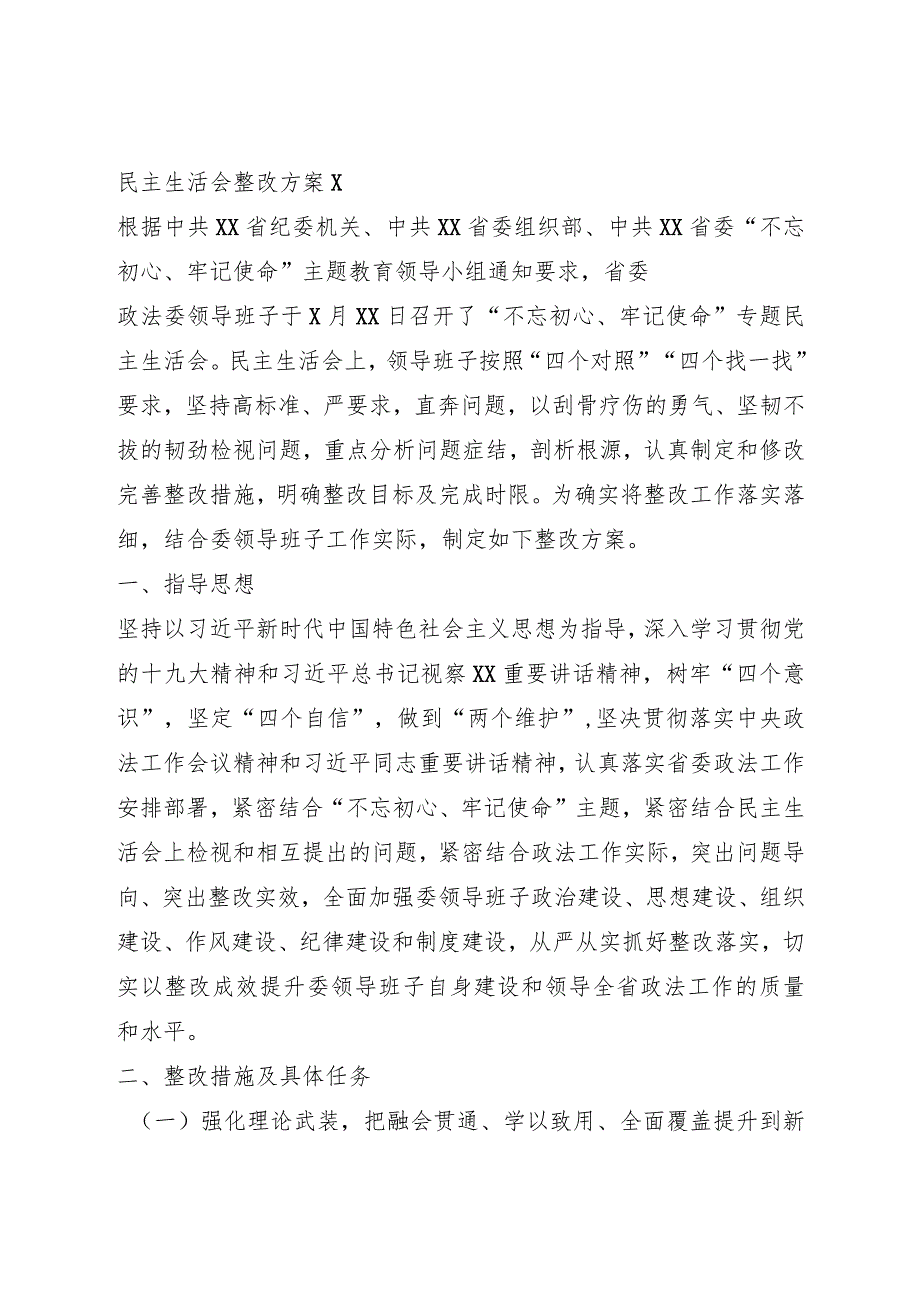 民主生活会整改方案X
根据中共XX省纪委机关、中共XX省委组织部、中共XX省委“不忘
初心、牢记使命”主题教育领导小组通知要求，省委
政法委领导班子于X月XX日召开了“不忘初心、牢记使命”专题民
主生活会。民主生活会上，领导班子按照“四个对照”“四个找一找”
要求，坚持高标准、严要求，直奔问题，以刮骨疗伤的勇气、坚韧不
拔的韧劲检视问题，重点分析问题症结，剖析根源，认真制定和修改
完善整改措施，明确整改目标及完成时限。为确实将整改工作落实落
细，结合委领导班子工作实际，制定如下整改方案。
一、指导思想
坚持以习近平新时代中国特色社会主义思想为指导，深入学习贯彻党
的十九大精神和习近平总书记视察XX重要讲话精神，树牢“四个意
识”，坚定“四个自信”，做到“两个维护”,坚决贯彻落实中央政
法工作会议精神和习近平同志重要讲话精神，认真落实省委政法工作
安排部署，紧密结合“不忘初心、牢记使命”主题，紧密结合民主生
活会上检视和相互提出的问题，紧密结合政法工作实际，突出问题导
向、突出整改实效，全面加强委领导班子政治建设、思想建设、组织
建设、作风建设、纪律建设和制度建设，从严从实抓好整改落实，切
实以整改成效提升委领导班子自身建设和领导全省政法工作的质量
和水平。
二、整改措施及具体任务
（一）强化理论武装，把融会贯通、学以致用、全面覆盖提升到新